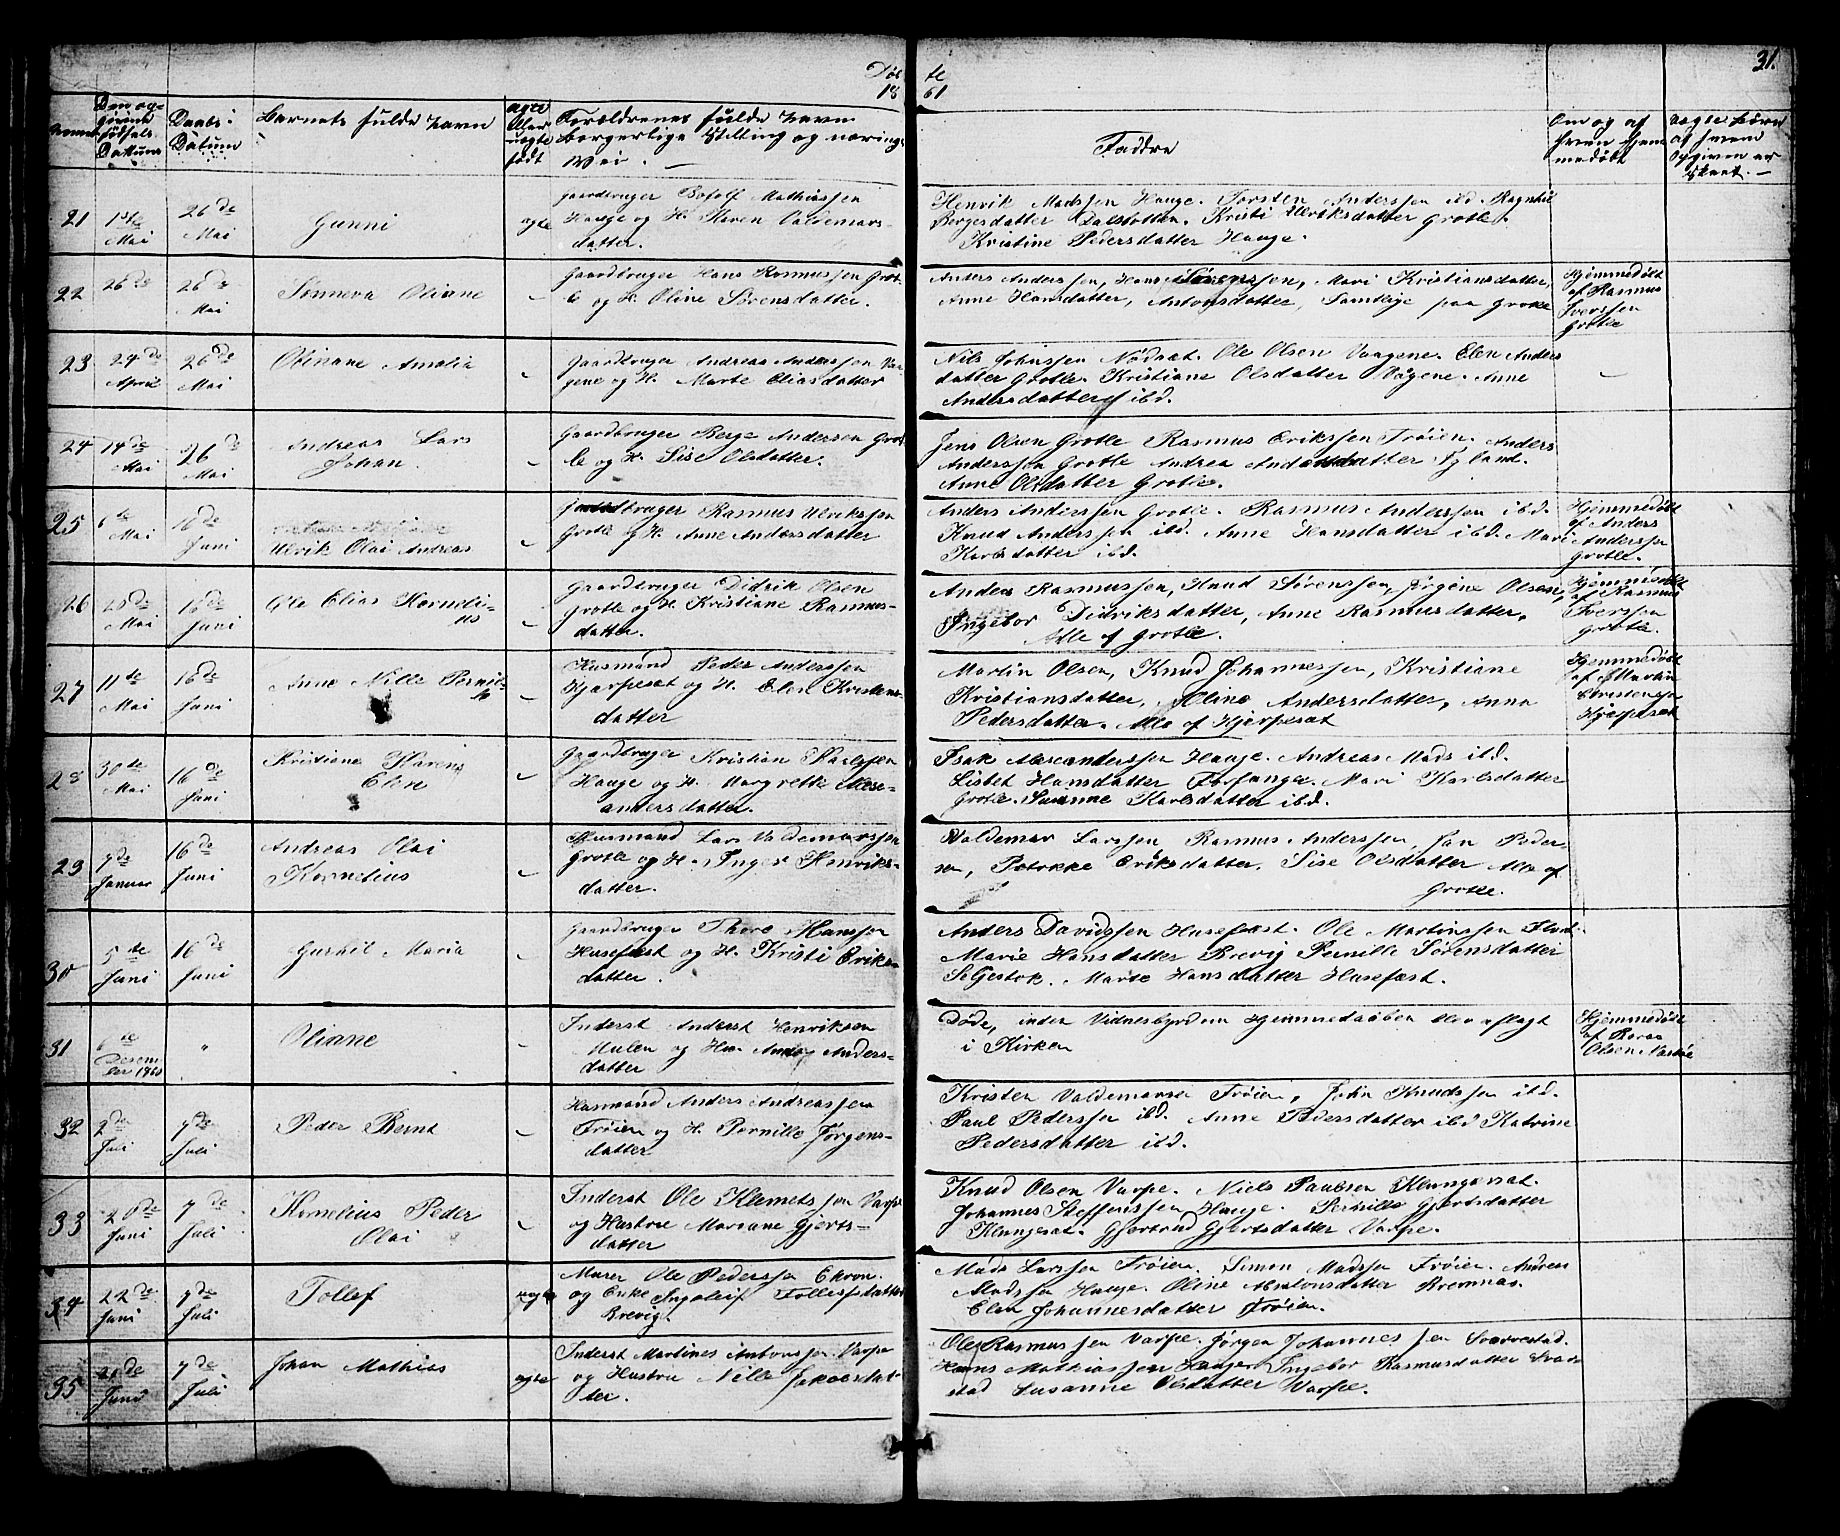 Døb
te
31.
18
61
Den og-
givine
fødsels
Dattum
Daabs:
Datum
Barnets fulde Navn
ægte
eller
uægte
født
Forældrenes fulde Navn
borgerlige Stilling og nærings
Vei. —
Faddre
Om og af
hvem hjem
medøbt
uægte børn
af hvem
Opgiven er
skeet. —
21
1ste
Mai
26de
Mai
Gunni
ægte
Gaardbruger Mathiassen
Hauge og H. Maren Valdemars-
datter.
Henrik Madssen Hauge. Torsten Anderssen ibd. Ragnhil
Børgesdatter Kristi Ulriksdatter Grotle.
Kristine Pedersdatter Hauge.
22
26de
26de
Mai
Sønneva Oliane
Gaardbruger Hans Rasmussen Grot-
le og H. Oline Sørensdatter.
Anders Anderssen, Hans Sørenssen, Mari Kristiansdatter,
Anne Hansdatter, Antonsdatter, Samtlige paa Grotle
Hjemmedøbt
af Rasmus
Iverssen
Grotle
23
24de
April
26de
Mai
Oliane Amalia
Gaardbruger Andreas Anderssen Vaa-
gene og H. Marte Eliasdatter
Nils Johnssen Nødsæt. Ole Olsen Vaagene. Elen Anders
datter Grotle. Kristiane Olsdatter Vågene. Anne
Andersdatter ibd.
24
14de
Mai
26de
Mai
Andreas Lars
Johan.
Gaardbruger Berge Andersen Grot-
le og H. Sise Olsdatter.
Jens Olsen Grotle Rasmus Erikssen Frøien. Anders
Anderssen Grotle Andrea Andersdatter Nyland.
Anne Olsdatter Grotle.
25
6de
Mai
16de
Juni
Ulrik Olai Andreas
Gaardbruger Rasmus Ulrikssen
Grotle og H. Anne Andersdatter
Anders Anderssen Grotle. Rasmus Anderssen ibd.
Knud Anderssen ibd. Anne Hansdatter ibd. Mari
Karlsdatter ibd.
Hjemmedøbt
af Anders
Anderssen
Grotle.
26
20de
Mai
16de
Juni
Ole Elias Korneli-
us
Gaardbruger Didrik Olsen
Grotle og H. Kristiane Rasmus-
datter.
Anders Rasmussen, Knud Sørenssen, Jørgine Olsen,
Ingebor Didriksdatter, Anne Rasmusdatter,
Alle af Grotle.
Hjemmedøbt
af Rasmus
Iverssen
Grotle.
27
11de
Mai
16de
Juni
Anne Nille Pernil-
le
Husmand Peder Anderssen
Hjarpesæt og H. Elen Kristens-
datter
Martin Olsen, Knud Johannessen, Kristiane
Kristiansdatter, Oline Andersdatter, Anna
Pedersdatter. Alle af Hjerpesæt
Hjemmedøbt
af Martin
Christenssen
Hjerpesæt
28
30te
Mai
16de
Juni
Kristiane Karens
Elen
Gaardbruger Kristian Karlssen
Hauge og H. Margrette Alexe-
andersdatter.
Isak Alexanderssen Hauge. Andreas Mads ibd.
Lisbet Hansdatter Mari Karlsdatter
Grotle. Susanne Karlsdatter ibd.
29
7de
Januar
16de
Juni
Andreas Olai
Kornelius
Husmand Lars Valdemarssen
Grotle og H. Inger Henriks-
datter.
Valdemar Larssen Rasmus Anderssen Jan Peder-
sen, Eriksdatter. Sise Olsdatter Alle af
Grotle.
30
5te
Juni
16de
Juni
Gurhil Maria
Gaardbruger Thore Hanssen
Husefæst og H. Kristi Eriks-
datter.
Anders Davidssen Husefæst. Ole Martinssen
Marie Hansdatter Brevig Pernille Sørensdatter
Marte Hansdatter Husefæst.
31
6te
Desem
ber 1860
"
Oliane
Inderst Anderst Henriksen
Hulen og Hu. Anders-
datter
Døde, inden Vidnesbyrd om Hjemmedaaben blev aflagt
i Kirken
Hjemmedøbt
af
Olsen
32
2den
Juli
7de
Juli
Peder Bernt
Husmand Anders Andreassen
Frøien og H. Pernille Jørgens-
datter
Kristen Valdemarsen Frøien, John Knudssen ibd.
Paul Pederssen ibd. Anne Pedersdatter ibd Katrine
Pedersdatter ibd.
33
20de
Juni
7de
Juli
Kornelius Peder
Olai
Inderst Ole Klemetssen Varpe
og Hustroe Mariane Gjerts-
datter
Knud Olsen Varpe. Niels Paulsen Klungesæt.
Johannes Steffenssen Hauge. Pernille Gjertsdatter
Klungesæt. Gjertrud Gjertsdatter Varpe.
34
22de
Juni
7de
Juli
Tollef
uægte
Murer Ole Pederssen
og Enke Ingeleif Tollefsdatter
Brevig
Mads Larssen Frøien. Simon Madssen Frøien. Andreas
Madssen Hauge. Oline Absalonsdatter Bremnæs.
Elen Johannesdatter Frøien.
35
21de
Juni
7de
Juli
Johan Mathias
ægte
Inderst Martines Antonssen Varpe
og Hustru Nille Jakobsdat-
ter.
Ole Rasmussen Varpe. Jørgen Johannessen Svarvestad.
Hans Mathiassen Hauge Ingebor Rasmusdatter
stad Susanne Olsdatter Varpe.